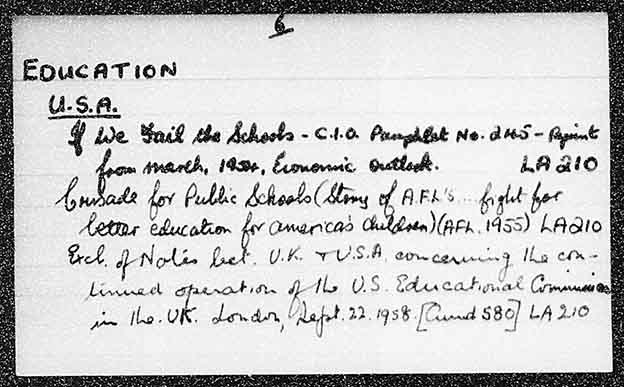 6
EDUCATION
U.S.A.
If We Fail the Schools - C.I.O. Pamphlet No. 245 - Reprint
from March, 1954, Economic Outlook. LA210
Crusade for Public Schools (Story of A.F.L's ... fight for
better education for America's Children) (AFL, 1955) LA210
Exch. of Notes bet. U.K. + U.S.A. concerning the con-
tinued operation of the U.S. Educational Commission
in the U.K. London, Sept. 22. 1958. [Cmnd 580] LA210